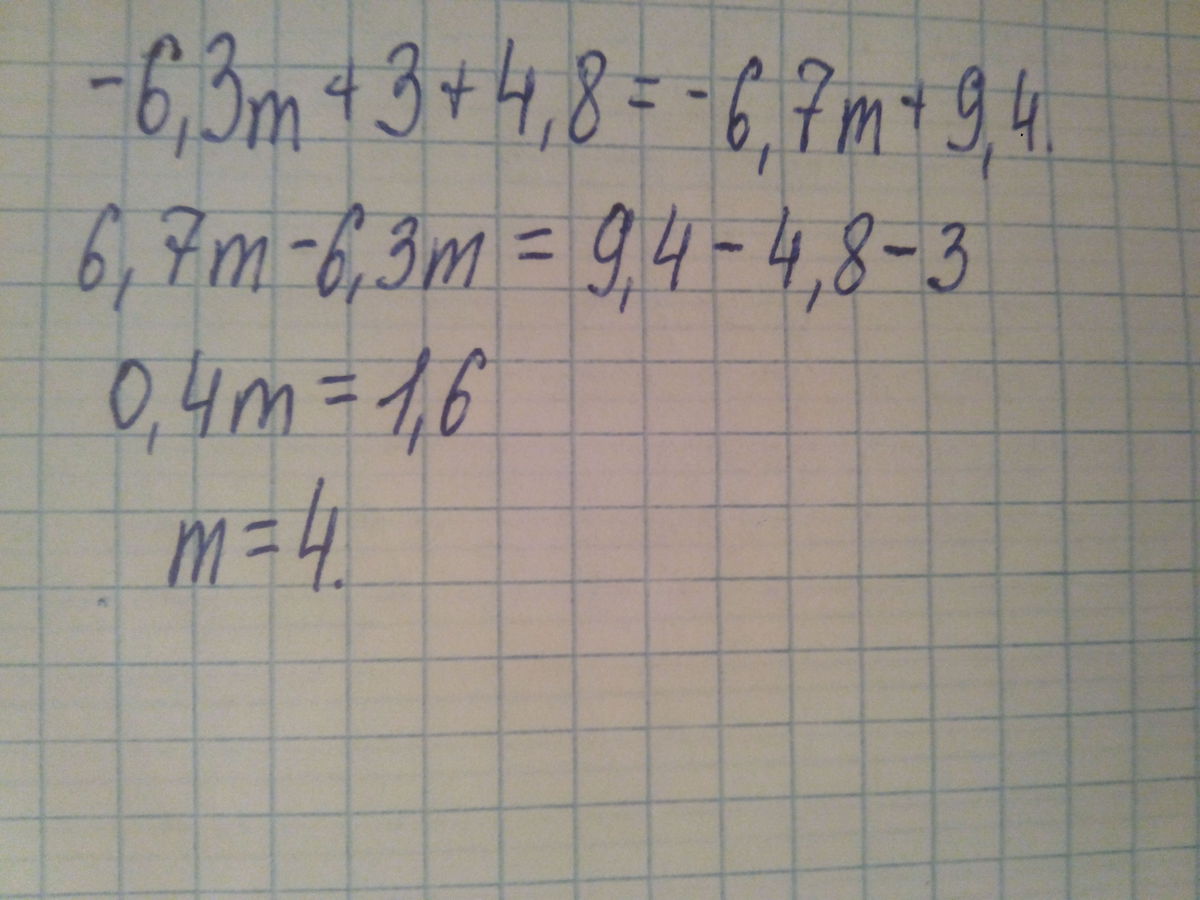 -6,3m+3+4,8=-6,7m+9,4.
6,7m-6,3m=9,4-4,8-3
0,4m=1,6
m=4.